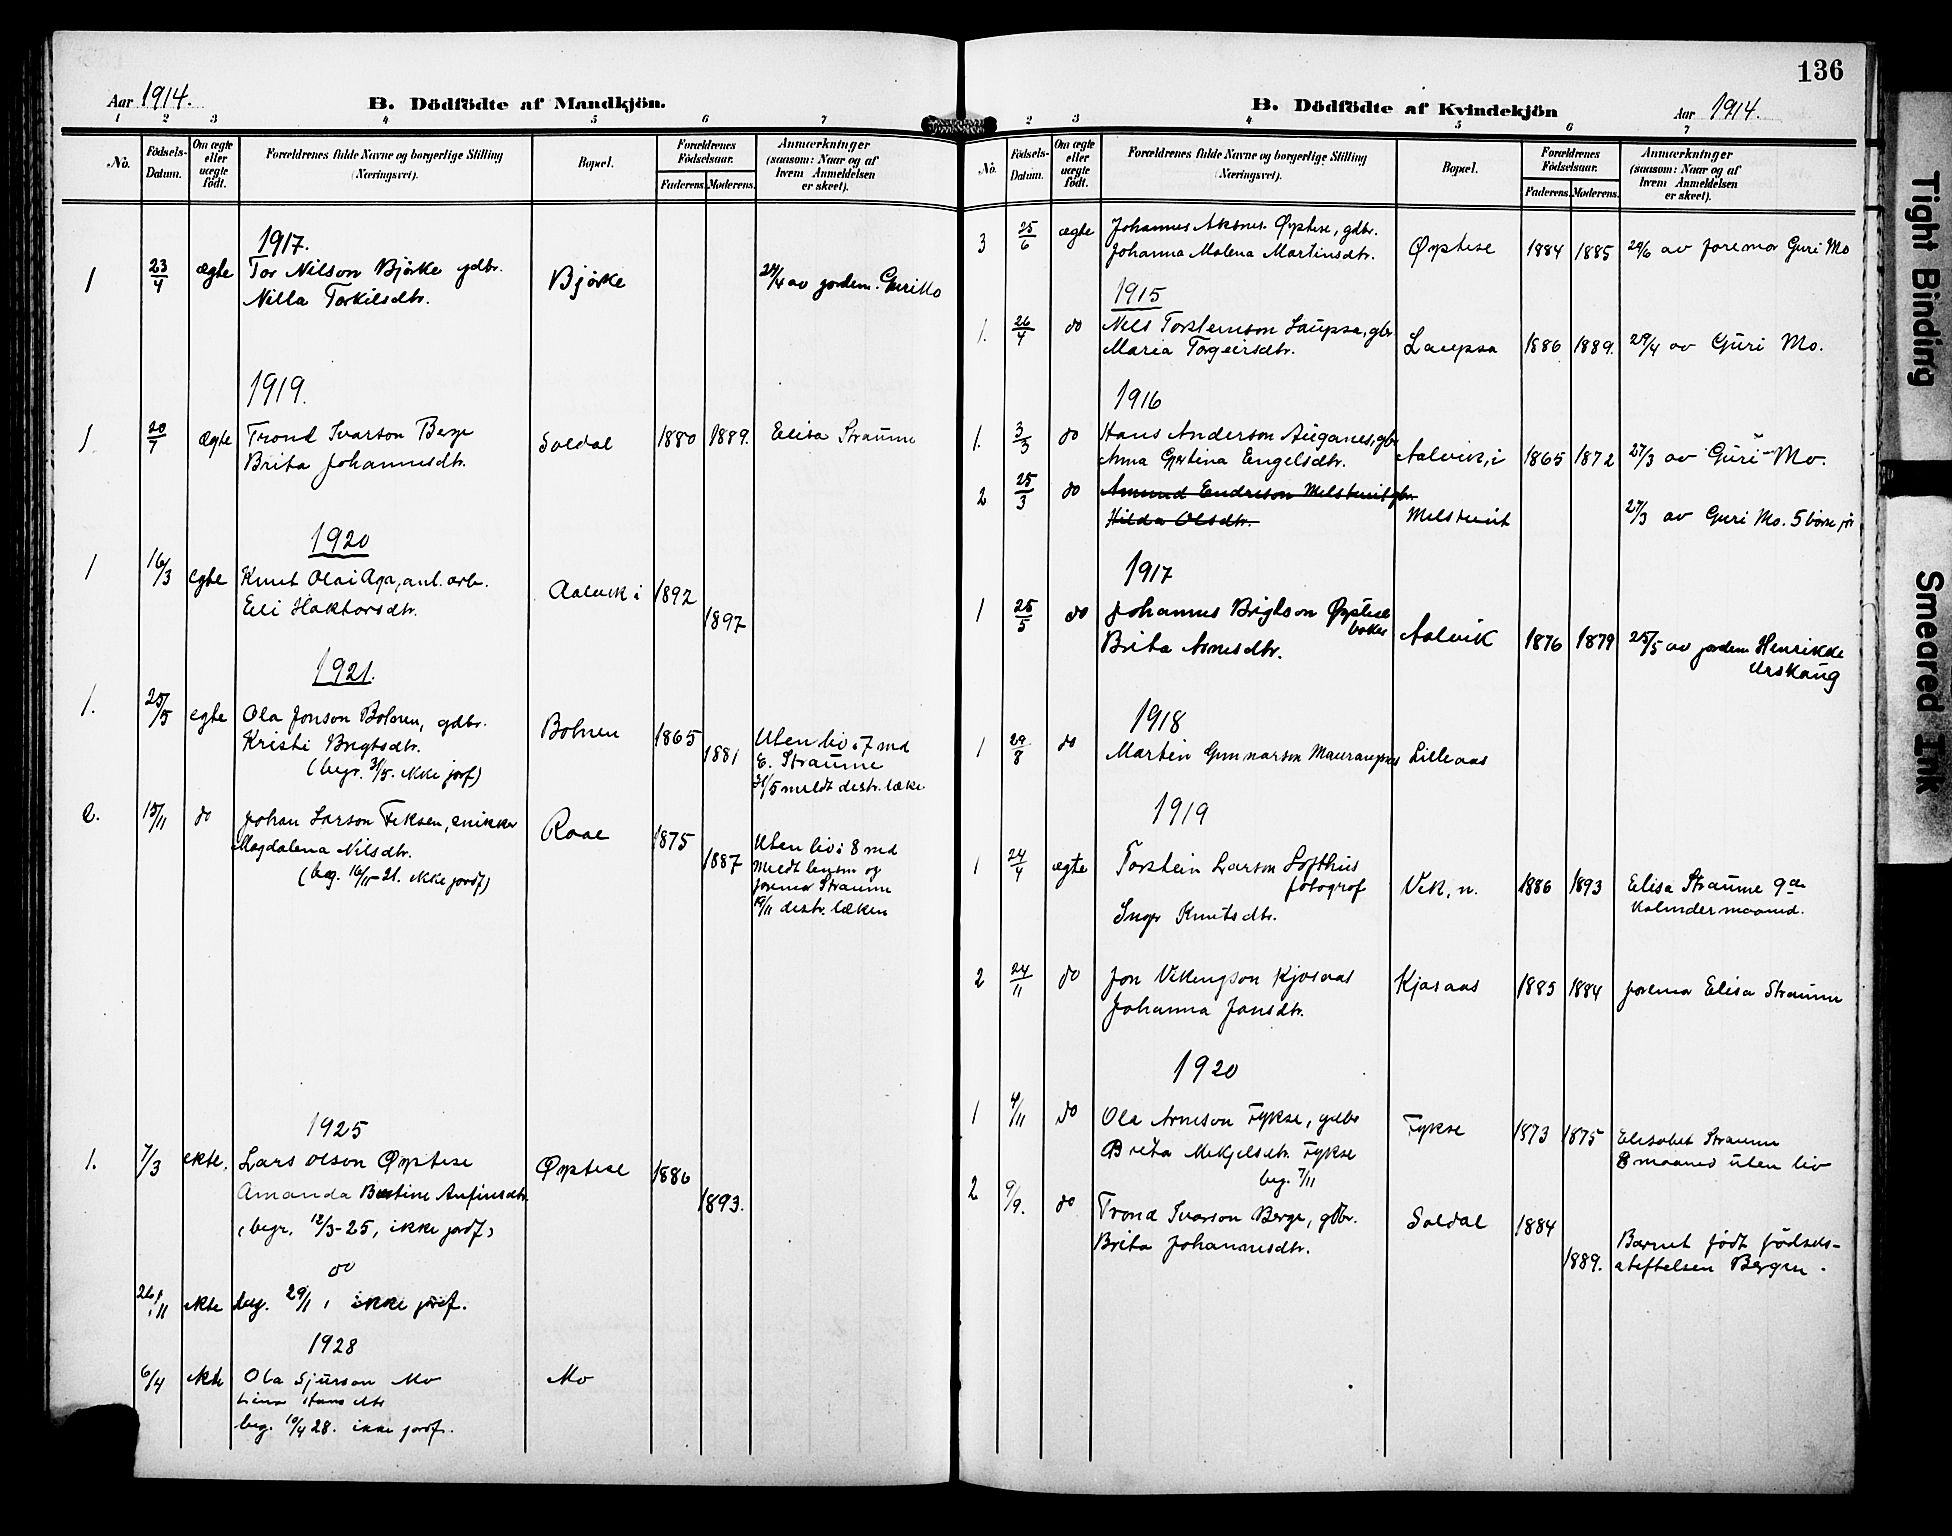 Aar 1914.
B. Dödfödte af Mandkjön.
1 2 3 4 5 6 7
No.
Födsels-Datum.
Om ægte eller uægte födt.
Forældrenes fulde Navne og borgerlige Stilling (Næringsvei).
Bopæl.
Forældrenes Födselsaar.
Faderens.
Moderens.
Anmærkninger (saasom: Naar og af hvem Anmeldelsen er skeet).
1917.
1 23/4 ægte Tor Nilson Bjørke gdbr. Bjørke 24/4 av jordem. Guri Mo
Nilla Torkilsdtr.
1919.
1 20/7 ægte Trond Ivarson Berge Soldal 1880 1889. Elisa Straume
Brita Johannesdtr.
1920
1 16/3 egte Knut Olai Aga, anl. arb. Aalvik i 1892
Eli Haktorsdtr. 1897
1921.
1. 25/5 egte Ola Jonson Botnen, gdbr. Botnen 1865
Kristi Brigtsdtr. 1881 Uten liv i 7 md
E. Straume
(begr. 31/5. ikke jordf)
31/5 meldt distr. læke
2. 15/11 do Johan Larson Teksen, snikker Raae 1875
Magdalena Nilsdtr. 1887 Uten liv i 8 md
(beg. 16/11-21. ikke jordf)
Meldt lensm og
jormor Straume
19/11 distr. læken
1925
1. 7/3 ekte. Lars Olson Øystese Øystese 1886
Amanda Bertine Anfinsdtr. 1893.
(begr. 12/3-25, ikke jordf)
do
26/11 ekte beg. 29/11, ikke jordf.
1928
6/4 ekte Ola Sjurson Mo Mo
Hansdtr
beg. 10/4 28. ikke jordf.
136
B. Dödfödte af Kvindekjön
Aar 1914.
2 3 4 5 6 7
No.
Födsels-Datum.
Om ægte eller uægte födt.
Forældrenes fulde Navne og borgerlige Stilling (Næringsvei).
Bopæl.
Forældrenes Födselsaar.
Faderens.
Moderens.
Anmærkninger (saasom: Naar og af hvem Anmeldelsen er skeet).
3 25/6 ægte Johannes Aksnes Øystese, gdbr. Øystese 1884 1885 29/6 av joremor Guri Mo
Johanna Malena Martinsdtr.
1915
1. 26/4 do Nils Torsteinson Laupsa, gbr Laupsa 1886 1889. 29/4 av Guri Mo.
Maria Torgeirsdtr.
1916
1. 3/3 do Hans Anderson Auganes, gbr Aalvik, i 1865 1872 27/3 av Guri Mo.
Anna Gjertina Engelsdtr.
2 25/3 do Amund Endreson Melstveit gbr. Melstveit 27/3 av Guri Mo. 5 børse før
Hilda Olsdtr.
1917
1 25/5 do Johannes Brigtson Øystese Aalvik 1876 1879 25/5 av jordem Henrikke
baker
Brita Arnesdtr. Urskaug
1918
1 29/8 do Martin Gunnarson Mauranger Lilleaas
1919
1 24/4 ægte Torstein Larson Lofthus Vik, n. 1886 1893 Elisa Straume 9de
fotograf
Kalindermaaned.
Inga Knutsdtr.
2 24/11 do Jon Vikingson Kjosaas Kjosaas 1885 1884 joremor Elisa Straume
Johanna Jonsdtr.
1920
1 4/11 do Ola Arneson Fykse, gdbr Fykse 1873 1875 Elisabet Straume
Brita Mikjelsdtr. Fykse 8 maaned uten liv
beg. 7/11
2 9/9. do Trond Ivarson Berge, gdbr. Soldal 1884
Brita Johannesdtr. 1889. Barnet født fødsels-
stiftelsen Bergen.
Tight Binding
Smeared Ink